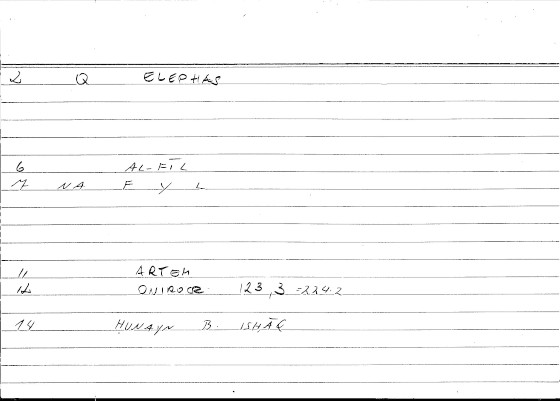 2 Q ELEPHAS
6 AL-FĪL
7 NA F Y L
11 ARTEM
12 ONIROCR 123,3 =224.2
14 ḤUNAYN B. ISḤĀQ